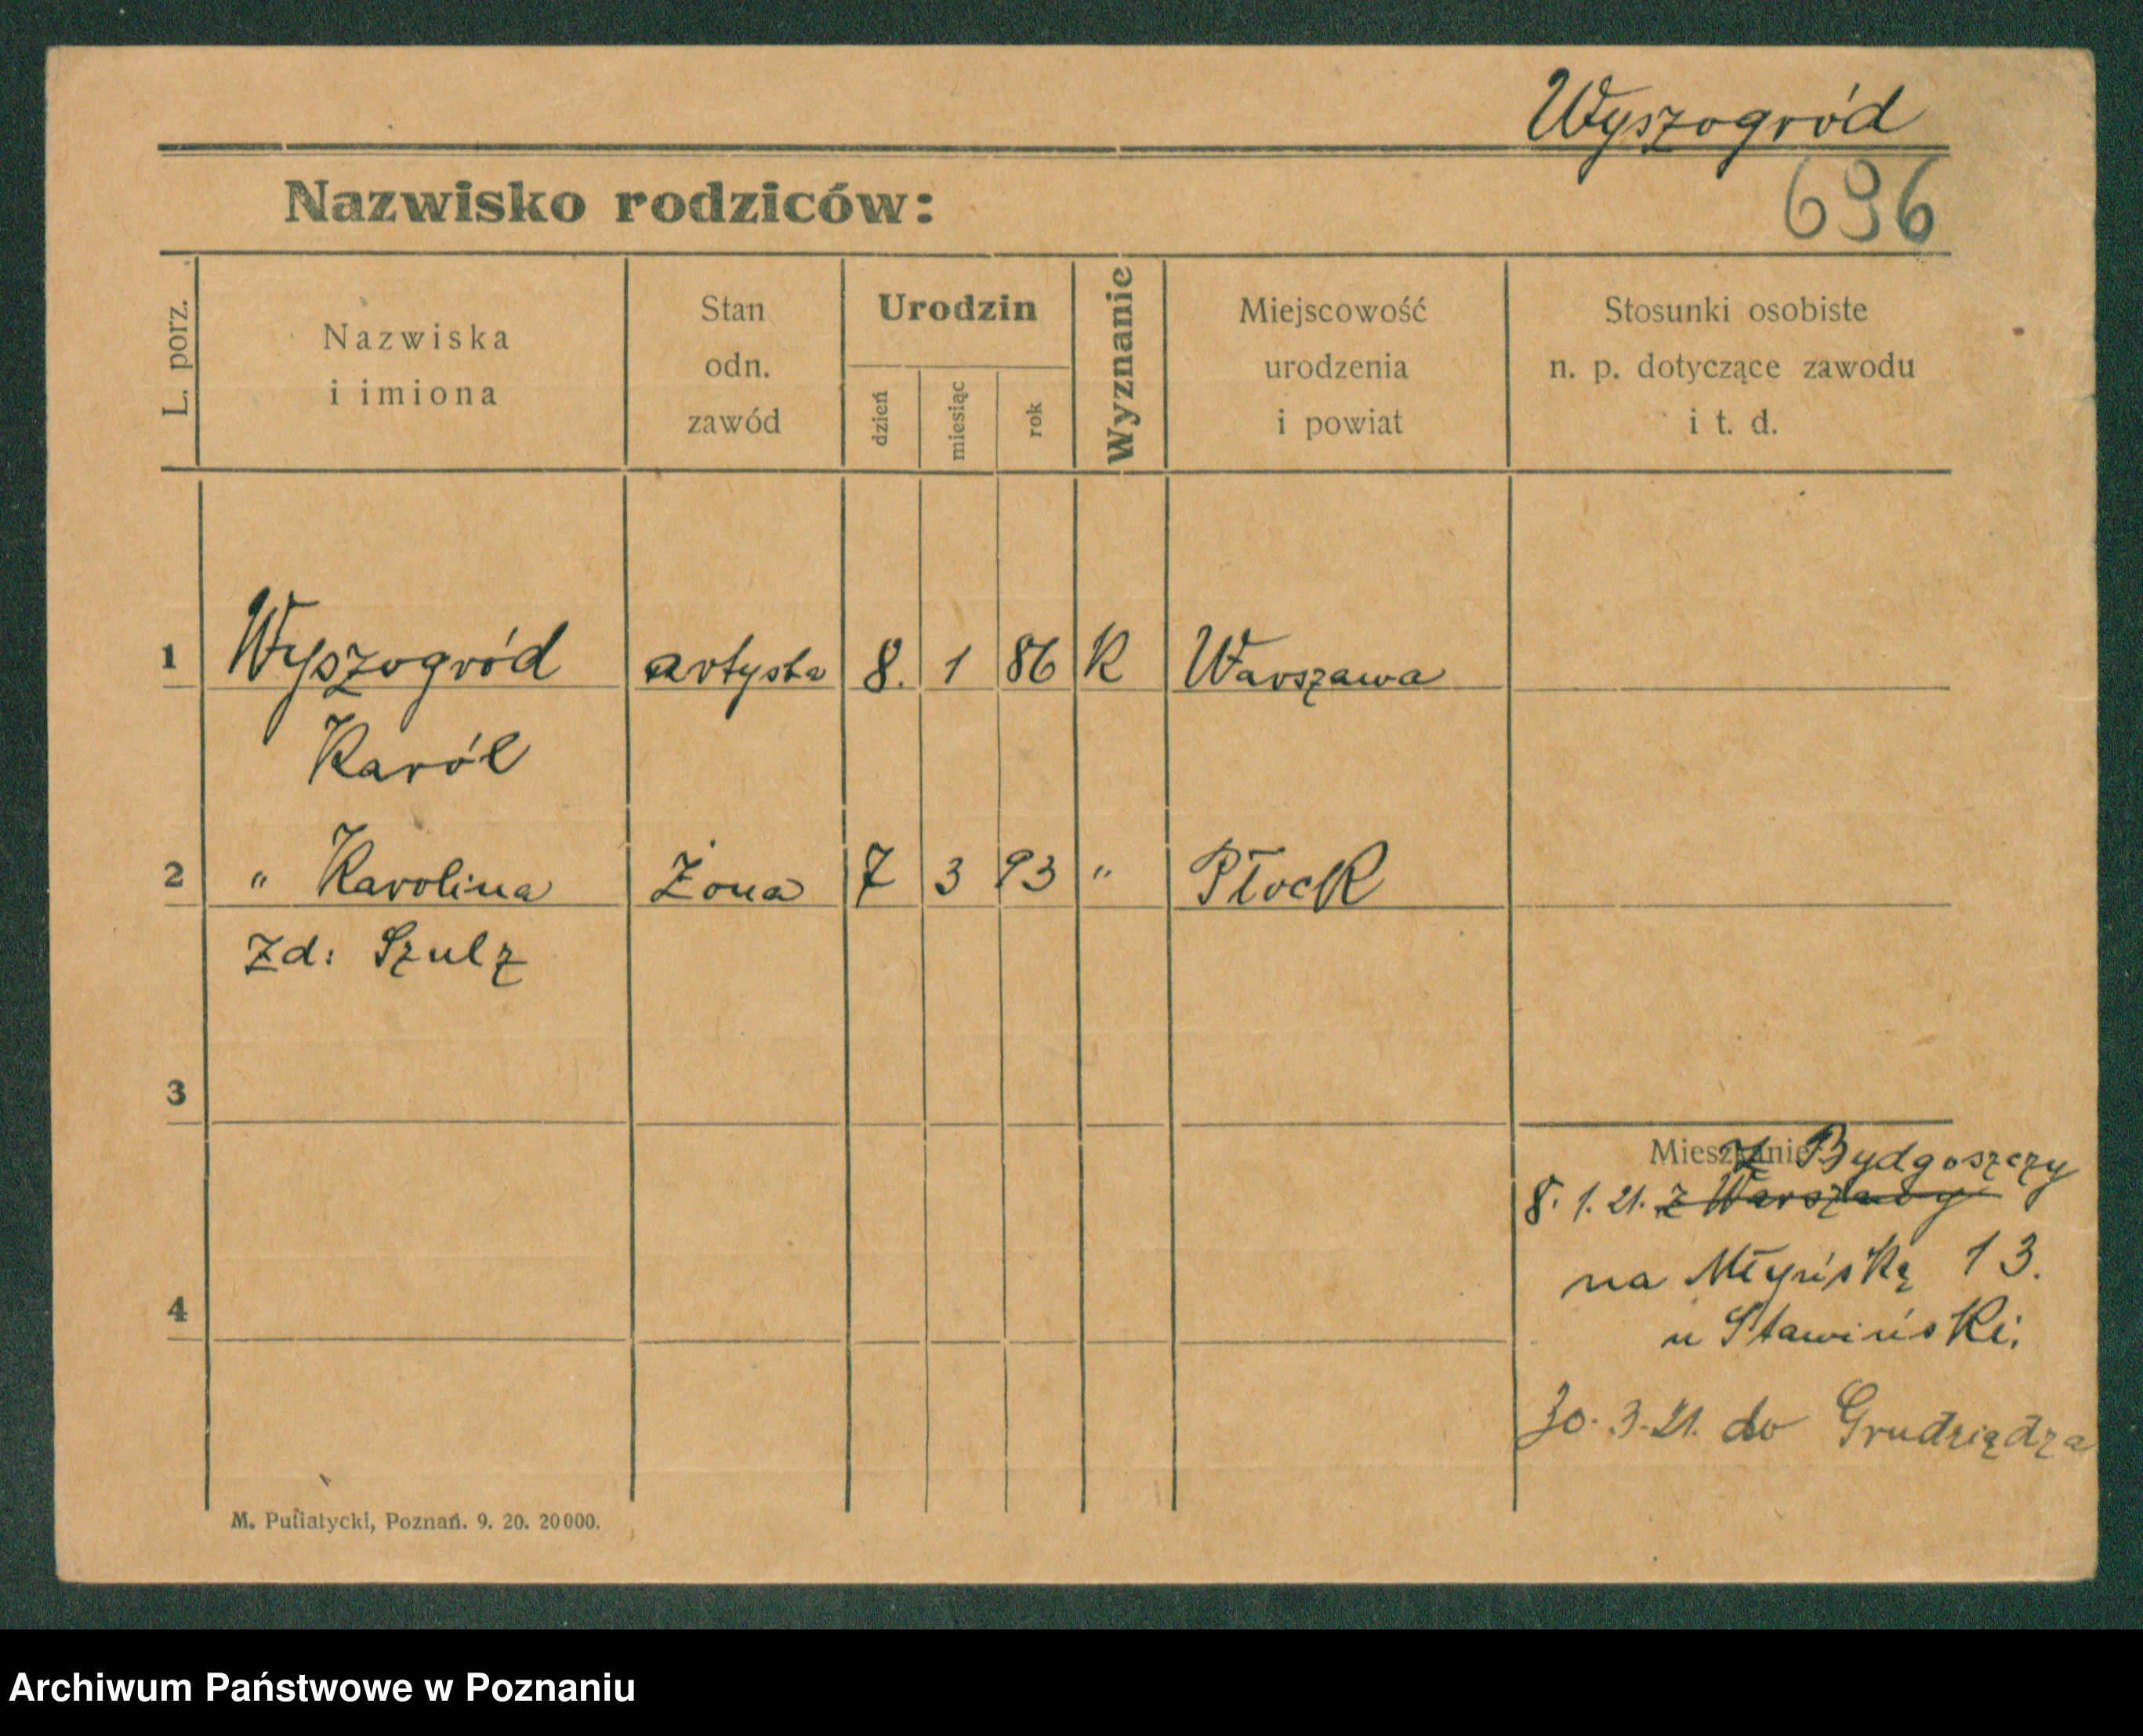 Wyszogród
696
Nazwisko rodziców:
L. porz.
Nazwiska
i imiona
Stan
odn.
zawód
Urodzin
dzień
miesiąc
rok
Wyznanie
Miejscowość
urodzenia
i powiat
Stosunki osobiste
n. p. dotyczące zawodu
i t. d.
1 Wyszogród artysta 8. 1 86 K Warszawa
Karól
2 " Karolina Żona 7 3 93 " Płock
Zd: Szulz
3
Mieszkanie z Bydgoszczy
8. 1. 21. z Warszawy
na Młyńską 13.
4
u Stawiński.
30. 3. 21. do Grudziądza
M. Putiatycki, Poznań. 9. 20. 20000.
Archiwum Państwowe w Poznaniu